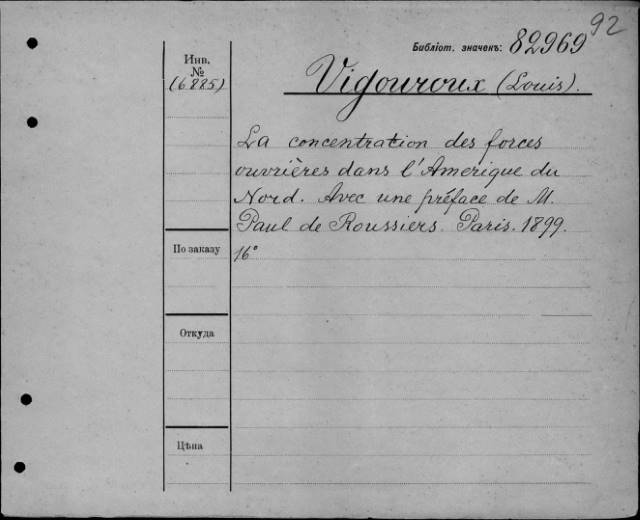 92
Библіот. значекъ: 82969
Инв.
№
(6885)
Vigouroux (Louis).
La concentration des forces
ouvrières dans l'Amerique du
Nord. Avec une préface de M.
Paul de Roussiers. Paris. 1899.
16°
По заказу
Откуда
Цѣна